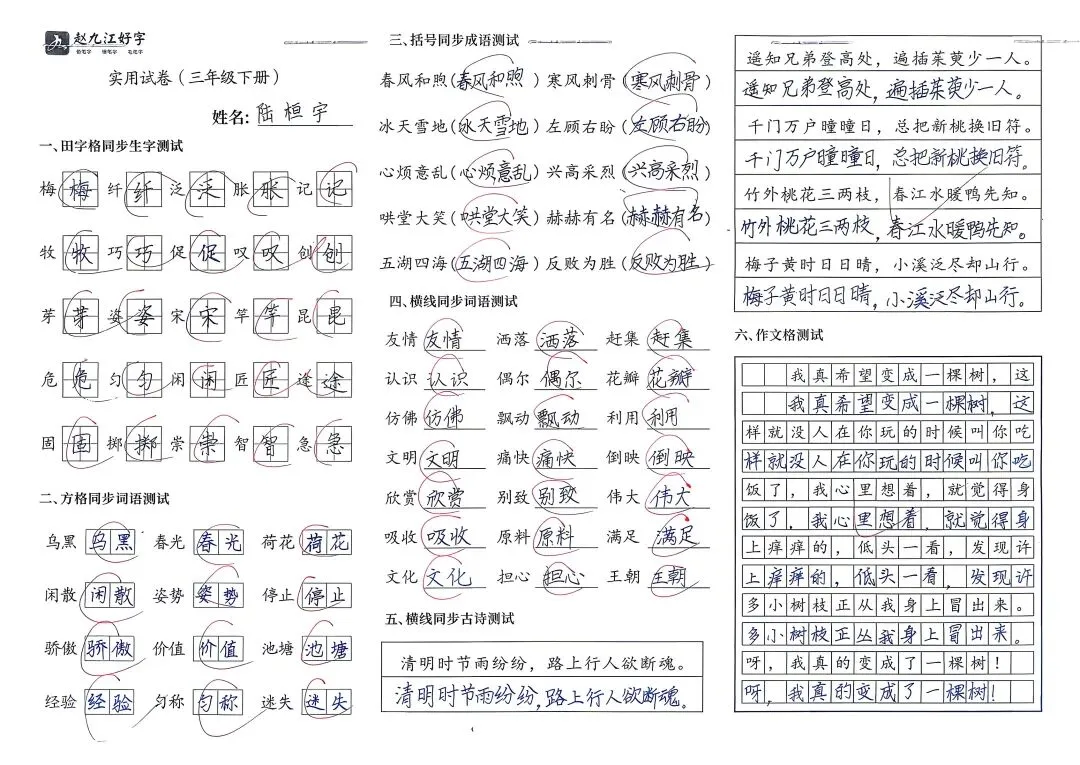 赵九江好字
铅笔字 钢笔字 毛笔字
实用试卷（三年级下册）
姓名：陆桓宇
一、田字格同步生字测试
梅 梅 纤 纤 泛 泛 胀 胀 记 记
牧 牧 巧 巧 促 促 叹 叹 创 创
芽 芽 姿 姿 宋 宋 竿 竿 昆 昆
危 危 匀 匀 闲 闲 匠 匠 途 途
固 固 掷 掷 崇 崇 智 智 急 急
二、方格同步词语测试
乌黑 乌黑 春光 春光 荷花 荷花
闲散 闲散 姿势 姿势 停止 停止
骄傲 骄傲 价值 价值 池塘 池塘
经验 经验 匀称 匀称 迷失 迷失
三、括号同步成语测试
春风和煦（春风和煦）寒风刺骨（寒风刺骨）
冰天雪地（冰天雪地）左顾右盼（左顾右盼）
心烦意乱（心烦意乱）兴高采烈（兴高采烈）
哄堂大笑（哄堂大笑）赫赫有名（赫赫有名）
五湖四海（五湖四海）反败为胜（反败为胜）
四、横线同步词语测试
友情 友情 洒落 洒落 赶集 赶集
认识 认识 偶尔 偶尔 花瓣 花瓣
仿佛 仿佛 飘动 飘动 利用 利用
文明 文明 痛快 痛快 倒映 倒映
欣赏 欣赏 别致 别致 伟大 伟大
吸收 吸收 原料 原料 满足 满足
文化 文化 担心 担心 王朝 王朝
五、横线同步古诗测试
清明时节雨纷纷，路上行人欲断魂。
清明时节雨纷纷，路上行人欲断魂。
遥知兄弟登高处，遍插茱萸少一人。
遥知兄弟登高处，遍插茱萸少一人。
千门万户曈曈日，总把新桃换旧符。
千门万户曈曈日，总把新桃换旧符。
竹外桃花三两枝，春江水暖鸭先知。
竹外桃花三两枝，春江水暖鸭先知。
梅子黄时日日晴，小溪泛尽却山行。
梅子黄时日日晴，小溪泛尽却山行。
六、作文格测试
我真希望变成一棵树，这
我真希望变成一棵树，这
样就没人在你玩的时候叫你吃
样就没人在你玩的时候叫你吃
饭了，我心里想着，就觉得身
饭了，我心里想着，就觉得身
上痒痒的，低头一看，发现许
上痒痒的，低头一看，发现许
多小树枝正从我身上冒出来。
多小树枝正从我身上冒出来。
呀，我真的变成了一棵树！
呀，我真的变成了一棵树！